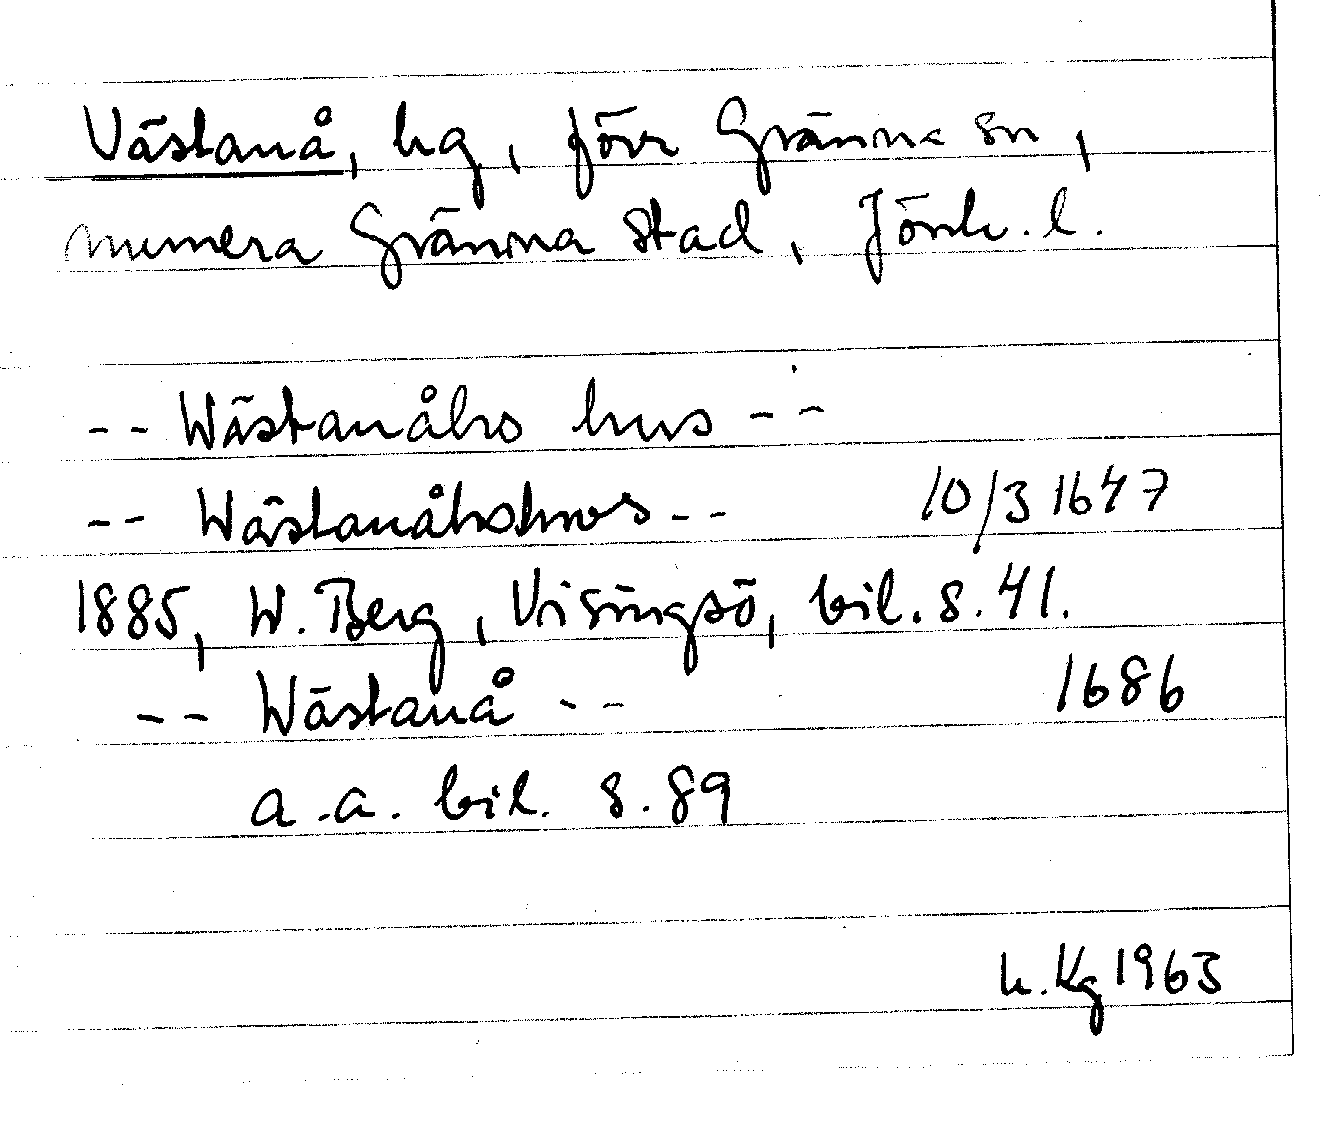 Västanå, hg, förr Gränna sn,
numera Gränna stad, Jönk. l.
-- Wästanåhs hus --
-- Wästanåhshws -- 10/3 1647
1885, W. Berg, Visingsö, bil. s. 41.
-- Wästanå -- 1686
a.a. bil. s. 89
h. Kg 1963